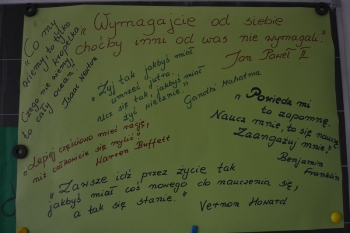 „Wymagajcie od siebie
choćby inni od was nie wymagali."
Jan Paweł II
„Co my
wiemy, to tylko
kropelka.
Czego nie wiemy,
to cały ocean."
Isaac Newton
„Żyj tak, jakbyś miał
umrzeć jutro.
Ucz się tak, jakbyś miał
żyć wiecznie."
Gandhi Mahatma
„Powiedz mi
to zapomnę.
Naucz mnie, to się nauczę
Zaangażuj mnie,"
Benjamin
Franklin
„Lepiej częściowo mieć rację,
niż całkowicie się mylić"
Warren Buffett
„Zawsze idź przez życie tak
jakbyś miał coś nowego do nauczenia się,
a tak się stanie."
Vernon Howard